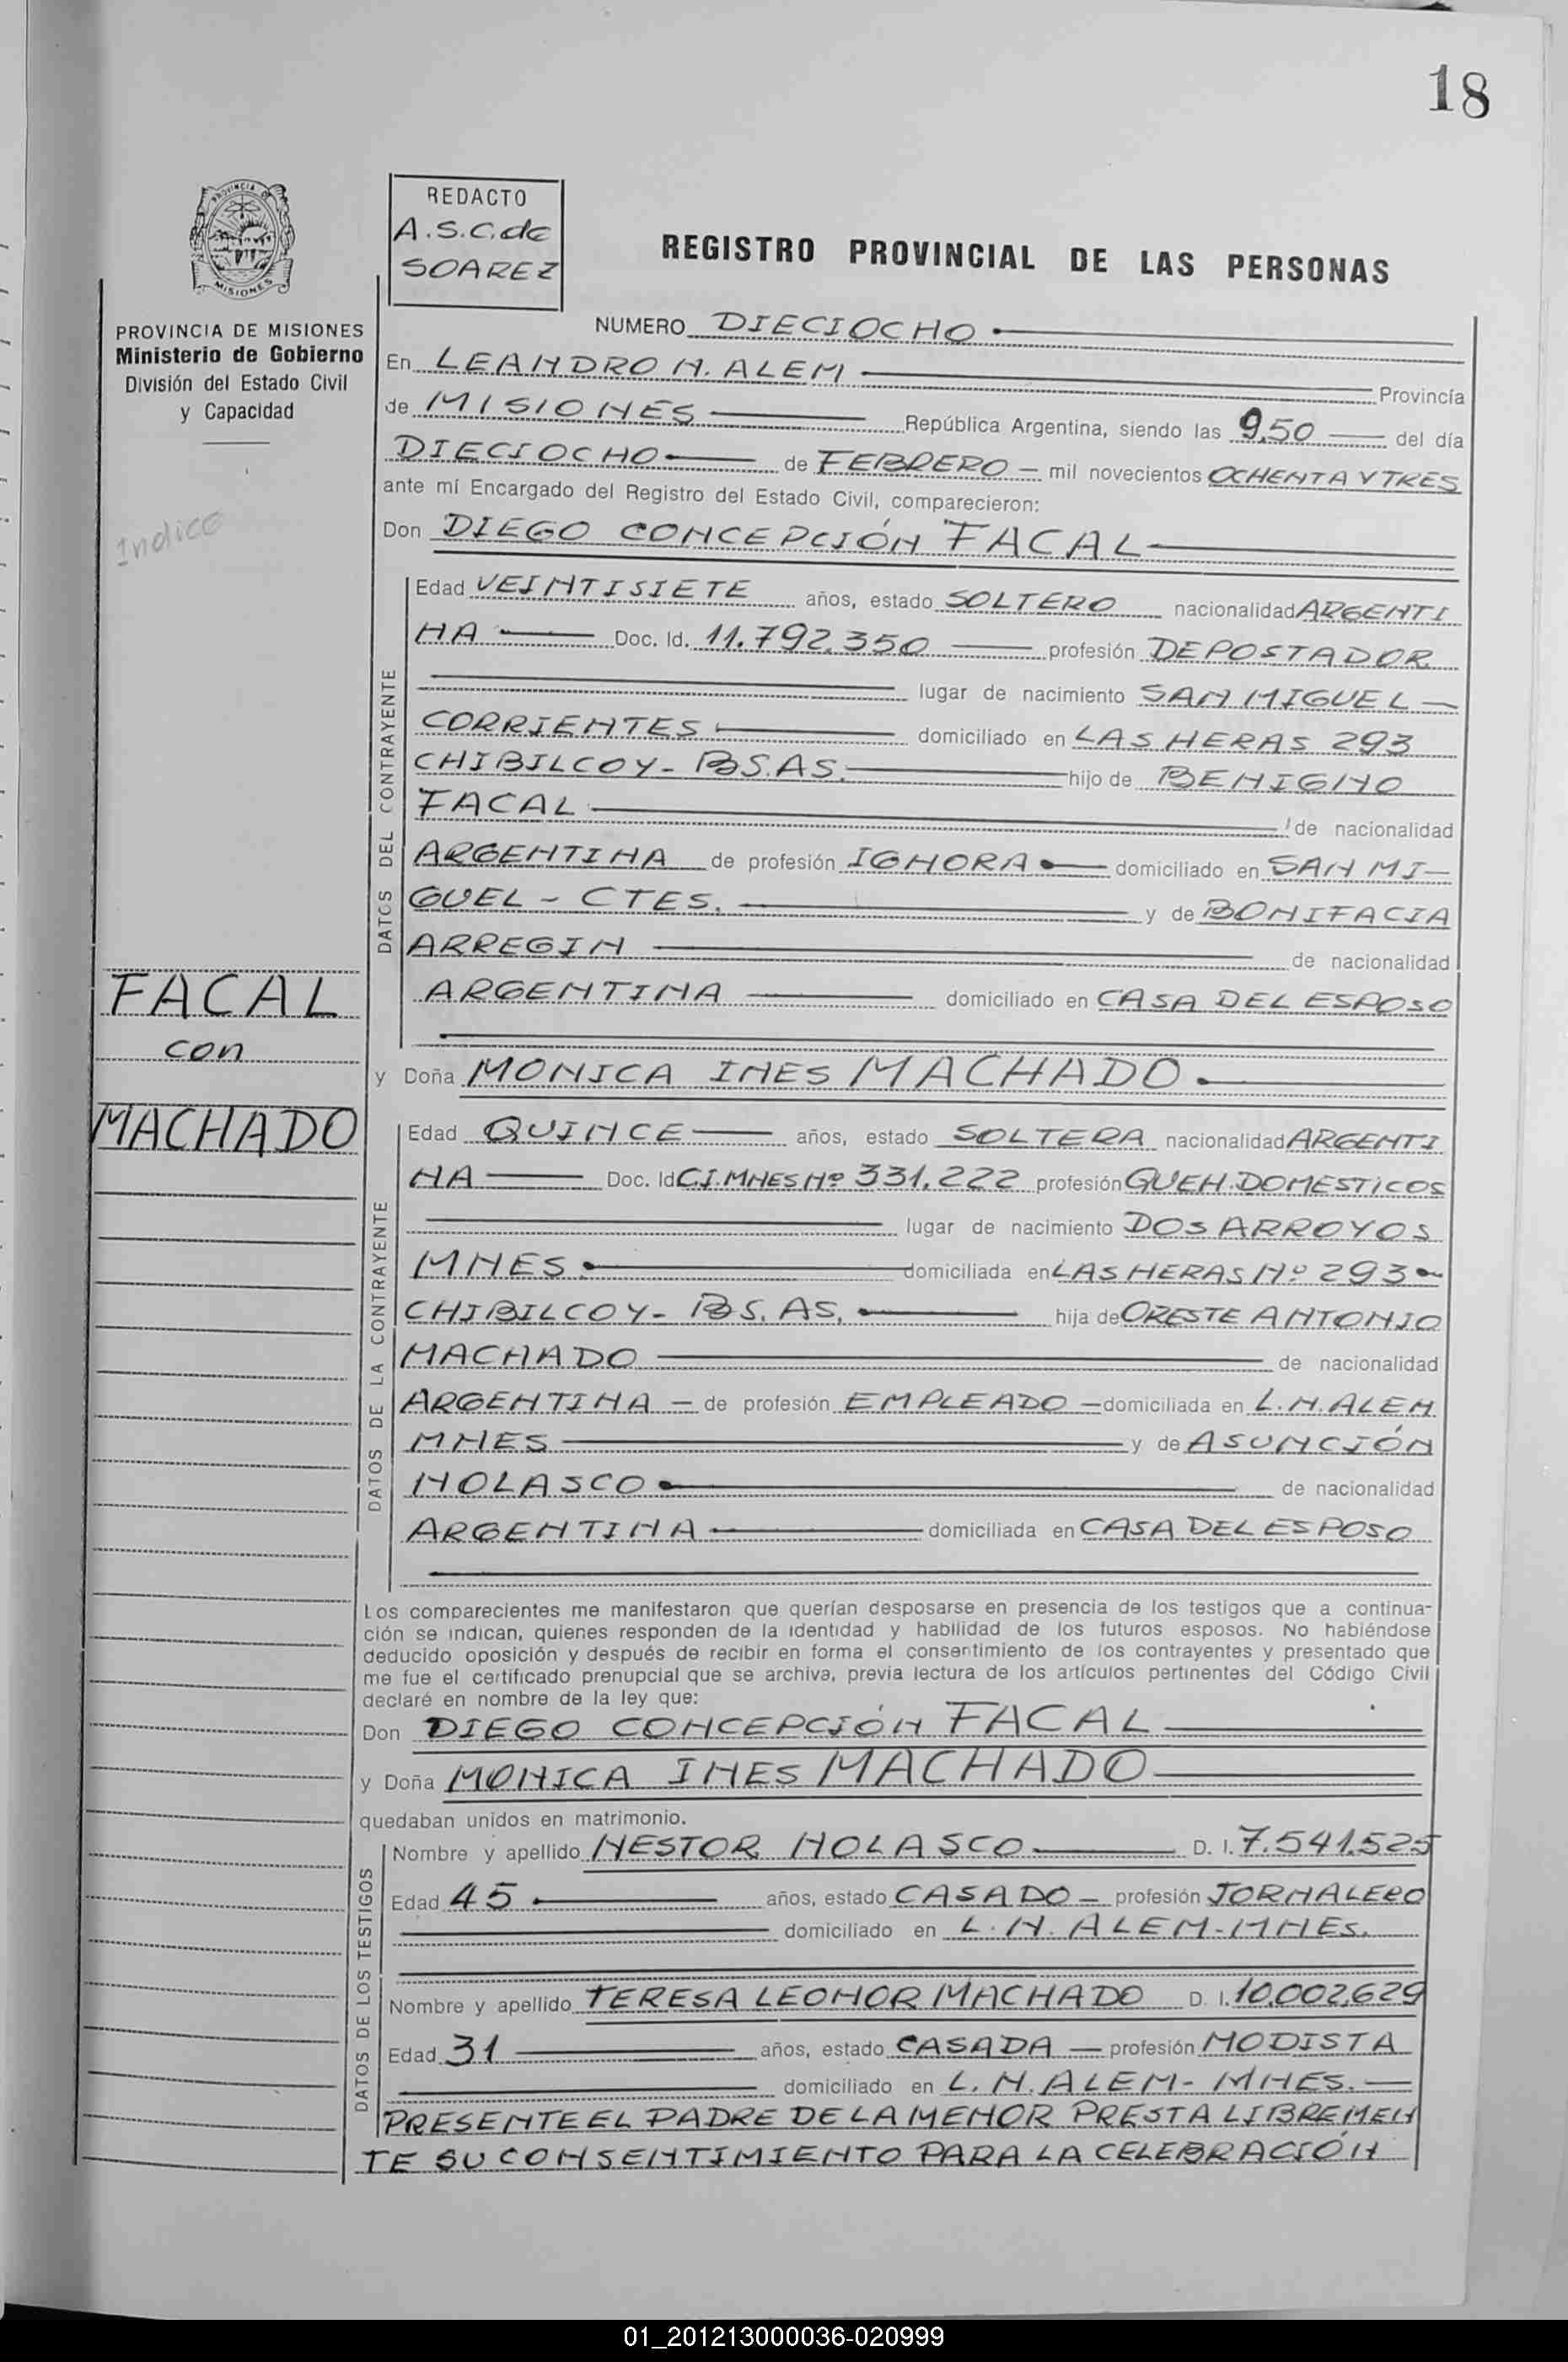 18
PROVINCIA DE
MISIONES
REDACTO
A.S.C. de
SOAREZ
REGISTRO PROVINCIAL DE LAS PERSONAS
PROVINCIA DE MISIONES
Ministerio de Gobierno
División del Estado Civil
y Capacidad
Indice
FACAL
con
MACHADO
NUMERO DIECIOCHO
En LEANDRO N. ALEM Provincia
de MISIONES República Argentina, siendo las 9,50 del día
DIECIOCHO de FEBRERO mil novecientos OCHENTA Y TRES
ante mí Encargado del Registro del Estado Civil, comparecieron:
Don DIEGO CONCEPCIÓN FACAL
DATOS DEL CONTRAYENTE
Edad VEINTISIETE años, estado SOLTERO nacionalidad ARGENTI
NA Doc. Id. 11.792.350 profesión DEPOSTADOR
lugar de nacimiento SAN MIGUEL
CORRIENTES domiciliado en LAS HERAS 293
CHIBILCOY - BS.AS. hijo de BENIGNO
FACAL de nacionalidad
ARGENTINA de profesión IGNORA domiciliado en SAN MI-
GUEL - CTES. y de BONIFACIA
ARREGIN de nacionalidad
ARGENTINA domiciliado en CASA DEL ESPOSO
y Doña MONICA INES MACHADO
DATOS DE LA CONTRAYENTE
Edad QUINCE años, estado SOLTERA nacionalidad ARGENTI
NA Doc. Id C.I. MNES Nº 331.222 profesión QUEH. DOMESTICOS
lugar de nacimiento DOS ARROYOS
MNES domiciliada en LAS HERAS Nº 293
CHIBILCOY - BS. AS. hija de ORESTE ANTONIO
MACHADO de nacionalidad
ARGENTINA de profesión EMPLEADO domiciliada en L.N. ALEM
MNES y de ASUNCIÓN
NOLASCO de nacionalidad
ARGENTINA domiciliada en CASA DEL ESPOSO
Los comparecientes me manifestaron que querían desposarse en presencia de los testigos que a continua-
ción se indican, quienes responden de la identidad y habilidad de los futuros esposos. No habiéndose
deducido oposición y después de recibir en forma el consentimiento de los contrayentes y presentado que
me fue el certificado prenupcial que se archiva, previa lectura de los artículos pertinentes del Código Civil
declaré en nombre de la ley que:
Don DIEGO CONCEPCIÓN FACAL
y Doña MONICA INES MACHADO
quedaban unidos en matrimonio.
DATOS DE LOS TESTIGOS
Nombre y apellido NESTOR NOLASCO D. I. 7.541.525
Edad 45 años, estado CASADO profesión JORNALERO
domiciliado en L. N. ALEM - MNES.
Nombre y apellido TERESA LEONOR MACHADO D. I. 10.002.629
Edad 31 años, estado CASADA profesión MODISTA
domiciliado en L. N. ALEM - MNES.
PRESENTE EL PADRE DE LA MENOR PRESTA LIBREMEN
TE SU CONSENTIMIENTO PARA LA CELEBRACIÓN
01_201213000036-020999